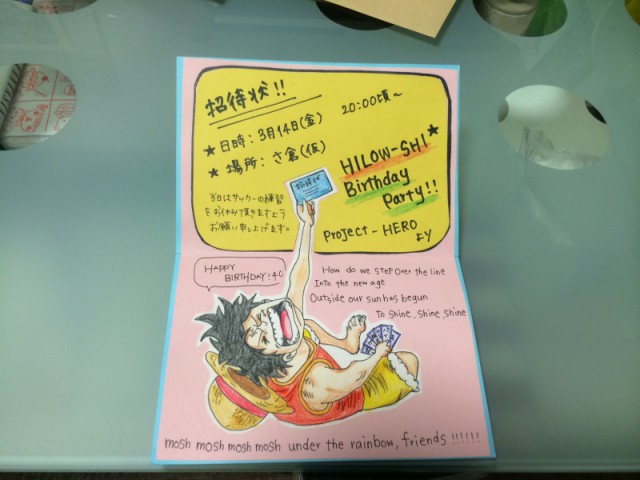 招待状!!
20:00頃~
★日時:3月14日(金)
★場所:さ倉(仮)
HILOW-SHI★
Birthday
Party!!
当日はサッカーの練習
をお休み頂きますよう
お願い申し上げます。
Project-HERO
より
招待状
HAPPY
BIRTHDAY!40
How do we STEP Over the line
Into the new age
Outside our sun has begun
To Shine, Shine, Shine
mosh mosh mosh mosh under the rainbow, friends!!!!!!